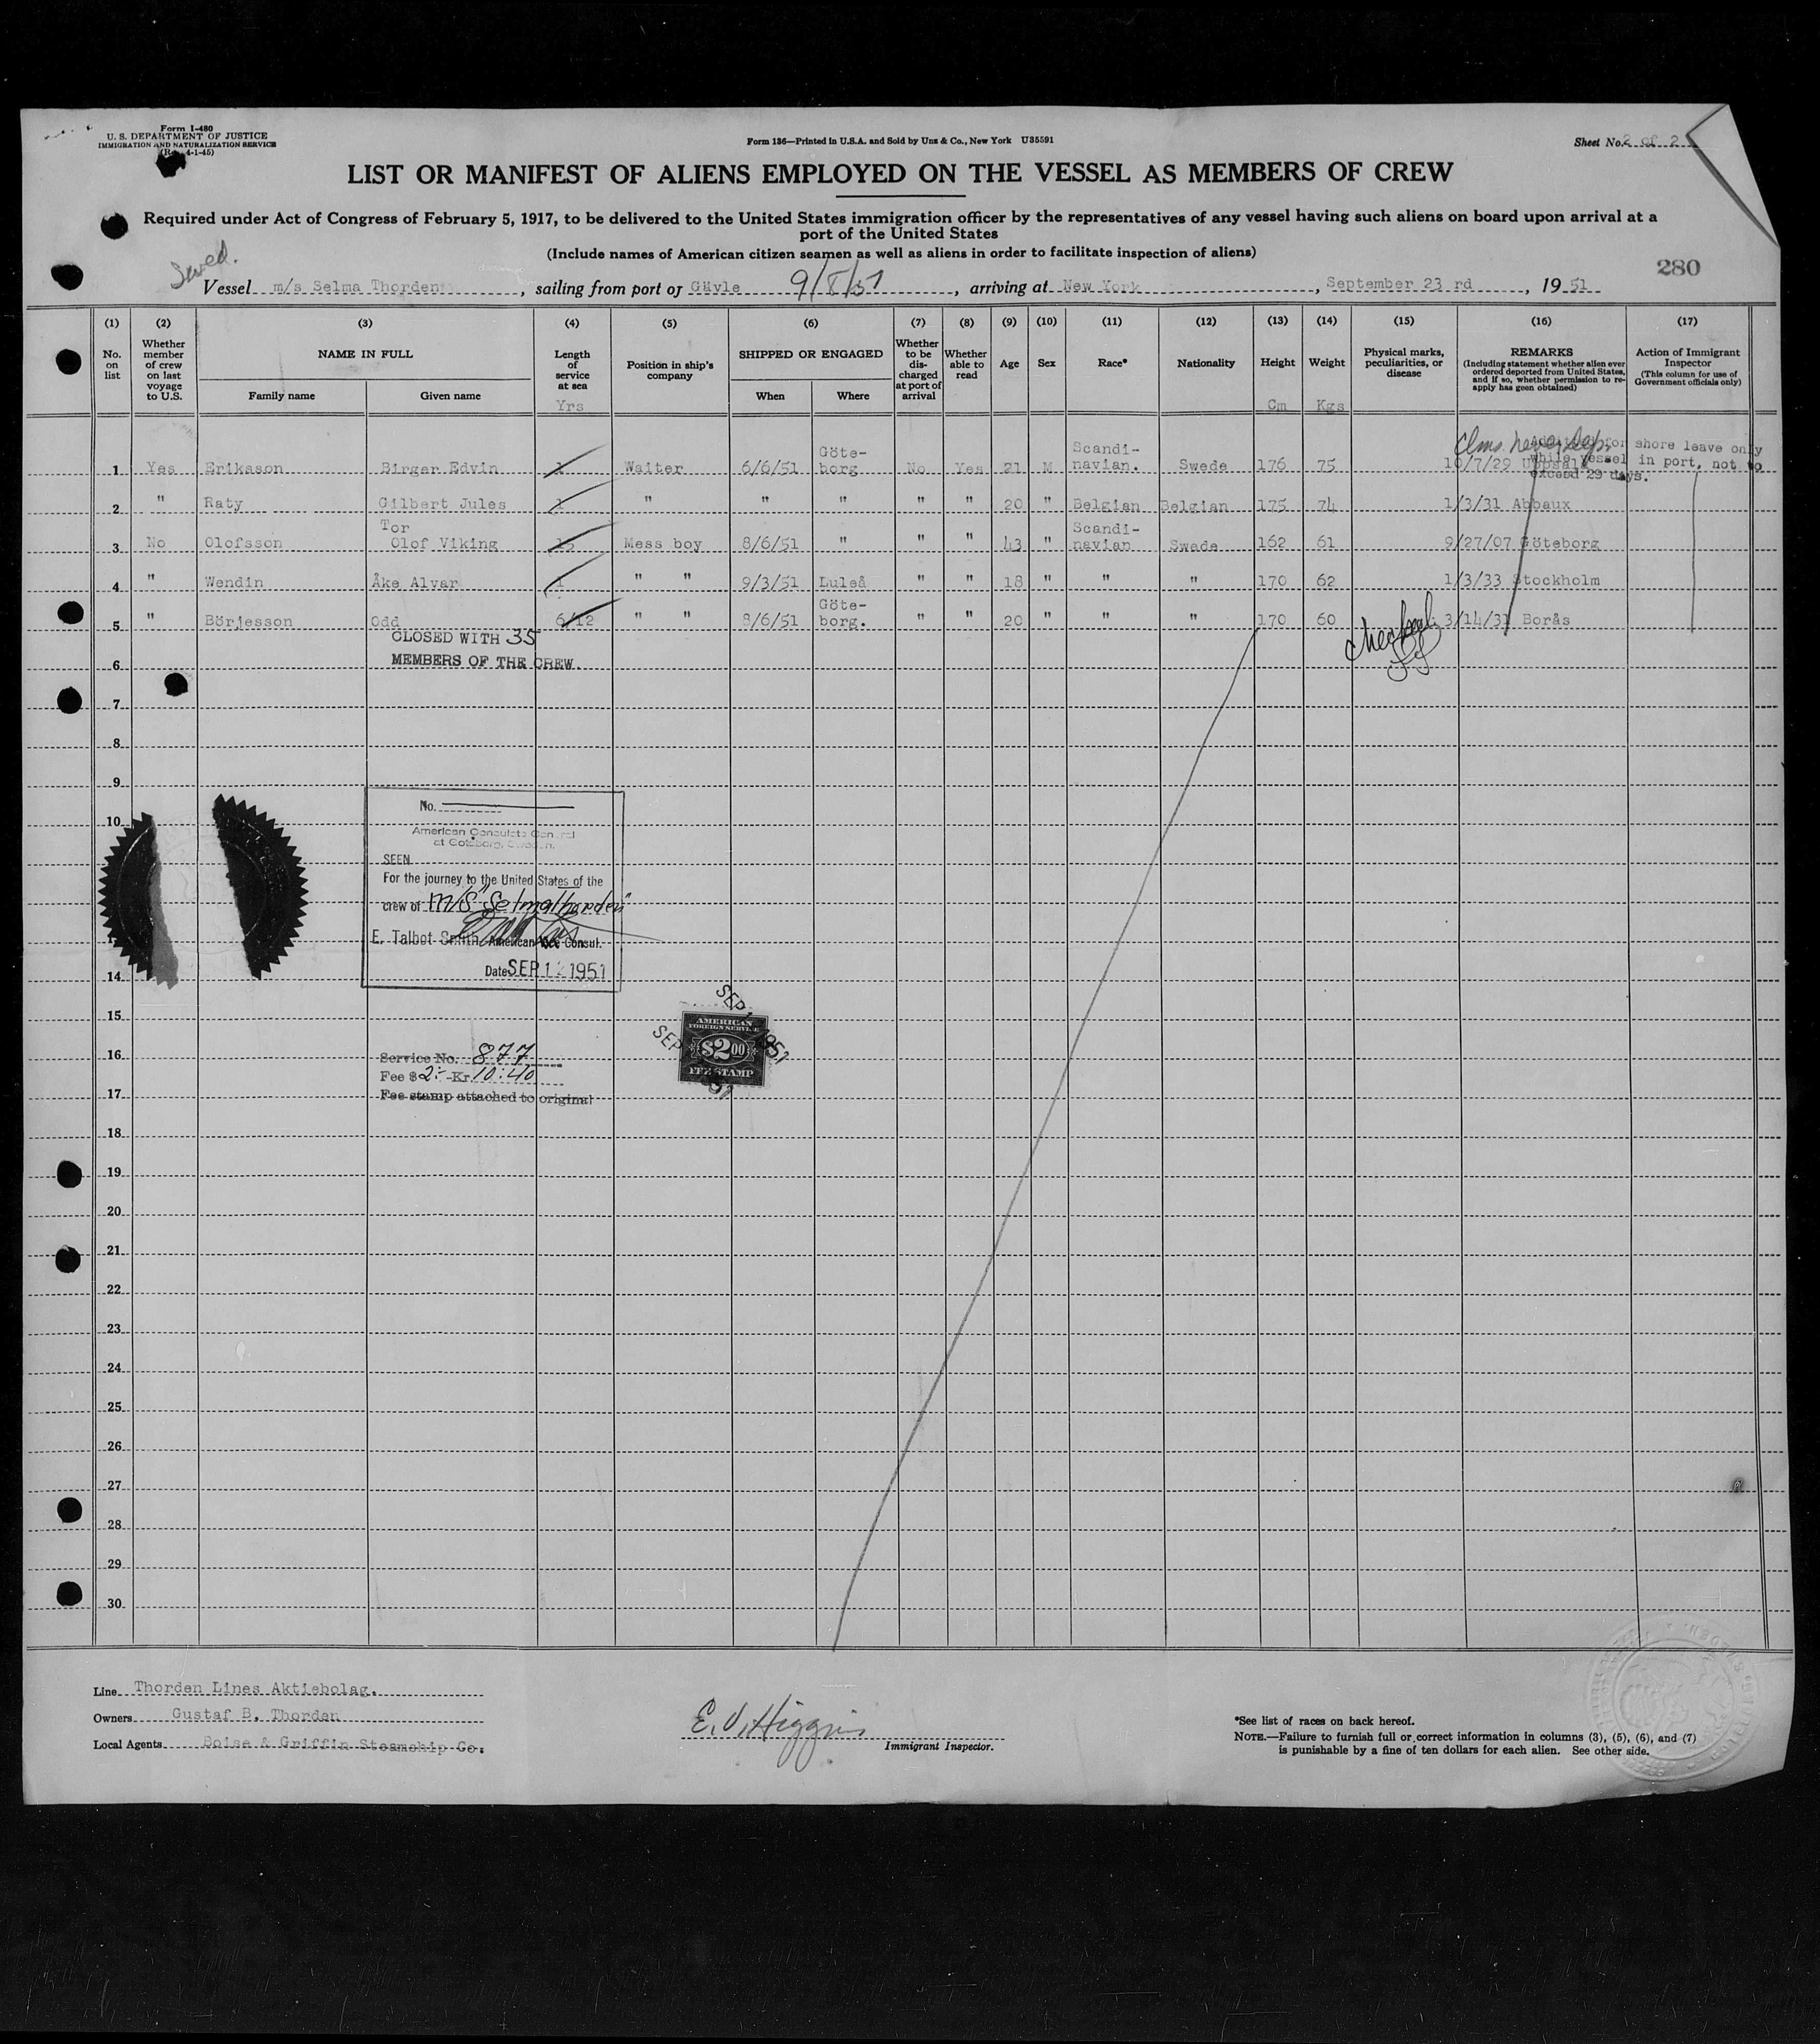 Form I-480
U. S. DEPARTMENT OF JUSTICE
IMMIGRATION AND NATURALIZATION SERVICE
(Rev. 4-1-45)
Form 136—Printed in U.S.A. and Sold by Unz & Co., New York U35591
Sheet No. 2 of 2
LIST OR MANIFEST OF ALIENS EMPLOYED ON THE VESSEL AS MEMBERS OF CREW
Required under Act of Congress of February 5, 1917, to be delivered to the United States immigration officer by the representatives of any vessel having such aliens on board upon arrival at a
port of the United States
(Include names of American citizen seamen as well as aliens in order to facilitate inspection of aliens)
280
Swed.
Vessel m/s Selma Thorden, sailing from port of Gävle 9/8/51, arriving at New York, September 23 rd, 1951
(1) (2) (3) (4) (5) (6) (7) (8) (9) (10) (11) (12) (13) (14) (15) (16) (17)
No. on list
Whether member of crew on last voyage to U.S.
NAME IN FULL
Family name
Given name
Length of service at sea
Yrs
Position in ship's company
SHIPPED OR ENGAGED
When
Where
Whether to be discharged at port of arrival
Whether able to read
Age
Sex
Race*
Nationality
Height
Cm
Weight
Kgs
Physical marks, peculiarities, or disease
REMARKS
(Including statement whether alien ever ordered deported from United States, and if so, whether permission to reapply has geen obtained)
Action of Immigrant Inspector
(This column for use of Government officials only)
Clms. never dep.
Admitted for shore leave only
while vessel in port, not to
exceed 29 days.
1 Yes Eriksson Birger Edvin 1 Waiter 6/6/51 Göte-borg No Yes 21 M Scandi-navian. Swede 176 75 10/7/29 Uppsala
2 " Raty Gilbert Jules 1 " " " " " 20 " Belgian Belgian 175 74 1/3/31 Abbaux
3 No Olofsson Tor Olof Viking 15 Mess boy 8/6/51 " " " 43 " Scandi-navian Swede 162 61 9/27/07 Göteborg
4 " Wendin Åke Alvar 1 " " 9/3/51 Luleå " " 18 " " " 170 62 1/3/33 Stockholm
5 " Börjesson Odd 6/12 " " 8/6/51 Göte-borg. " " 20 " " " 170 60 3/14/31 Borås
Checked
CLOSED WITH 35
MEMBERS OF THE CREW.
6
7
8
9
10
11
12
13
14
15
16
17
18
19
20
21
22
23
24
25
26
27
28
29
30
No.
American Consulate General
at Goteborg, Sweden.
SEEN
For the journey to the United States of the
crew of m/s "Selma Thorden"
E. Talbot Smith American Vice Consul.
Date SEP 12 1951
Service No. 877
Fee $ 2:- Kr 10:40
Fee stamp attached to original
SEP 1951
AMERICAN
FOREIGN SERVICE
$2.00
FEE STAMP
SEP
Line Thorden Lines Aktiebolag.
Owners Gustaf B. Thorden
Local Agents Boise & Griffin Steamship Co.
E. J. Higgins
Immigrant Inspector.
*See list of races on back hereof.
NOTE.—Failure to furnish full or correct information in columns (3), (5), (6), and (7)
is punishable by a fine of ten dollars for each alien. See other side.